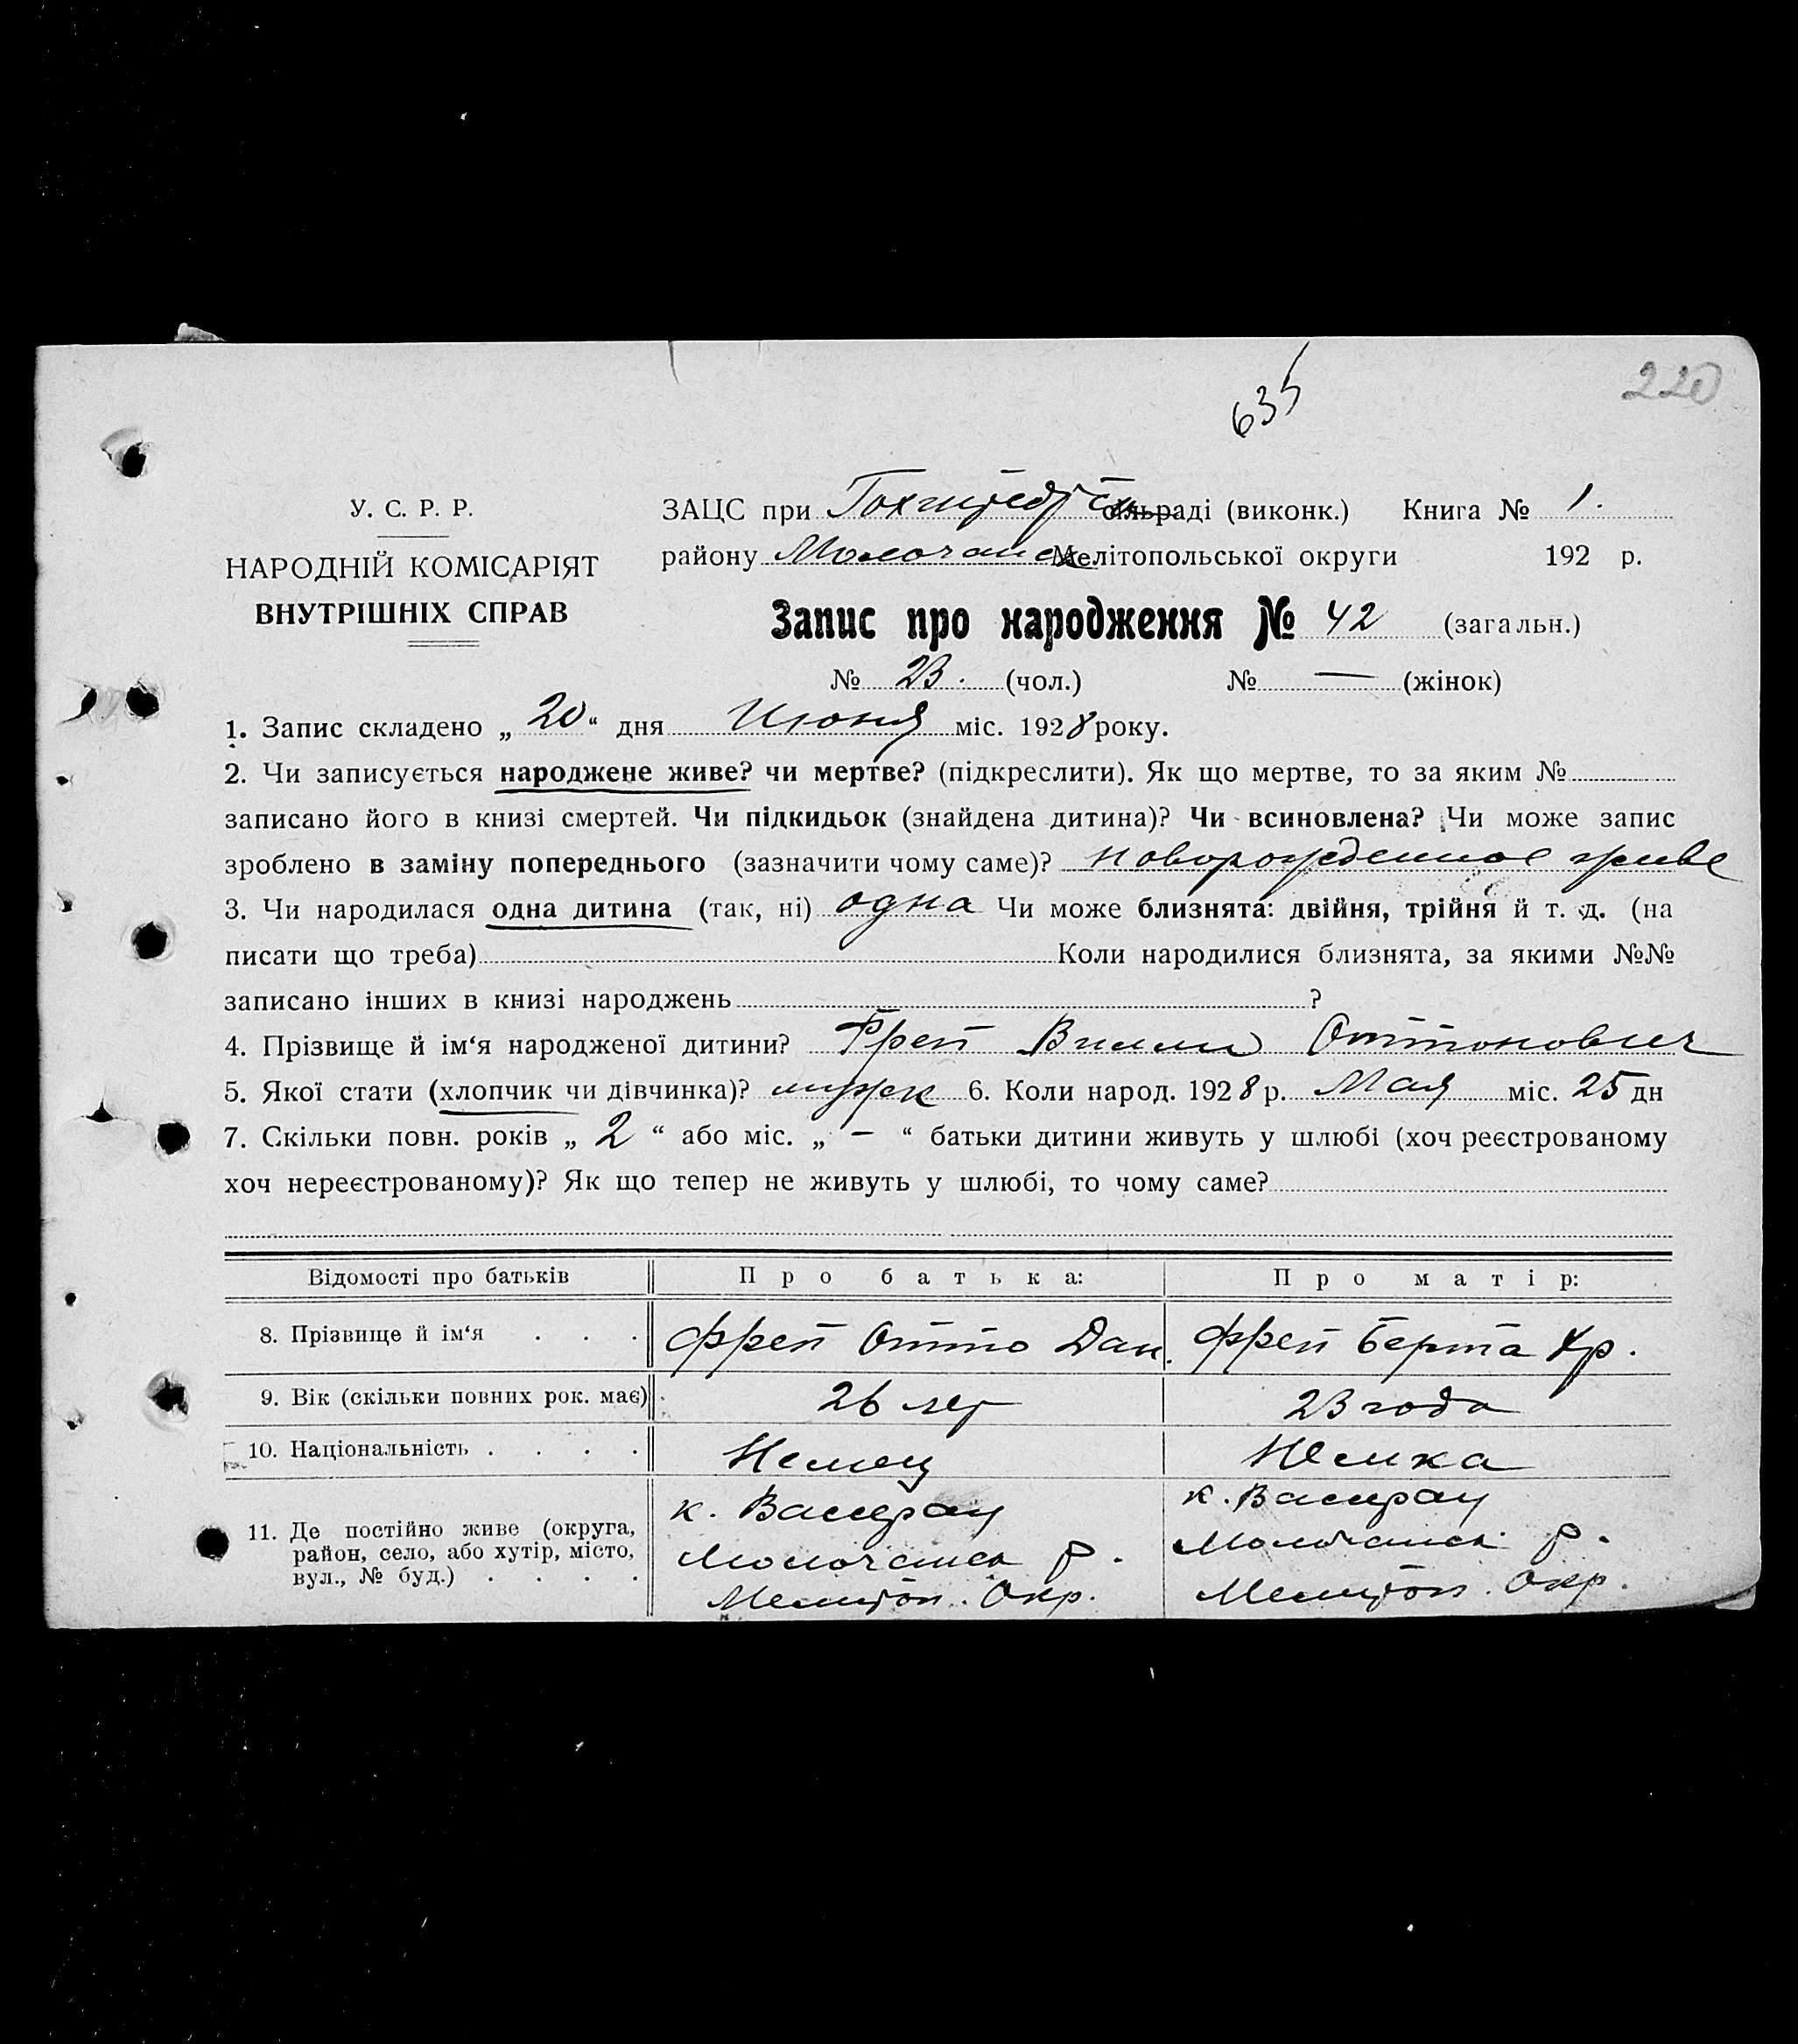 220
635
У. С. Р. Р.
НАРОДНІЙ КОМІСАРІЯТ
ВНУТРІШНІХ СПРАВ
ЗАЦС при Гохштедтск сільраді (виконк.) Книга № 1.
району Молочанск Мелітопольської округи 192 р.
Запис про народження № 42 (загальн.)
№ 23. (чол.) № — (жінок)
1. Запис складено „ 20 “ дня Июня міс. 1928 року.
2. Чи записується народжене живе? чи мертве? (підкреслити). Як що мертве, то за яким №
записано його в книзі смертей. Чи підкидьок (знайдена дитина)? Чи всиновлена? Чи може запис
зроблено в заміну попереднього (зазначити чому саме)? новорожденное живе
3. Чи народилася одна дитина (так, ні) одна Чи може близнята: двійня, трійня й т. д. (на
писати що треба) Коли народилися близнята, за якими №№
записано інших в книзі народжень ?
4. Прізвище й ім‘я народженої дитини? Фреп Вилли Оттонович
5. Якої стати (хлопчик чи дівчинка)? мужск 6. Коли народ. 1928 р. Мая міс. 25 дн
7. Скільки повн. років „ 2 “ або міс. „ — “ батьки дитини живуть у шлюбі (хоч реєстрованому
хоч нереєстрованому)? Як що тепер не живуть у шлюбі, то чому саме?
Відомості про батьків Про батька: Про матір:
8. Прізвище й ім‘я . . . Фреп Отто Дан. Фреп Берта Хр.
9. Вік (скільки повних рок. має) 26 лет 23 года
10. Національність . . . . Немец Немка
11. Де постійно живе (округа, район, село, або хутір, місто, вул., № буд.) . . . .
к. Вассерау
Молочанск р.
Мелитоп. Окр.
к. Вассерау
Молочанск р.
Мелитоп. Окр.